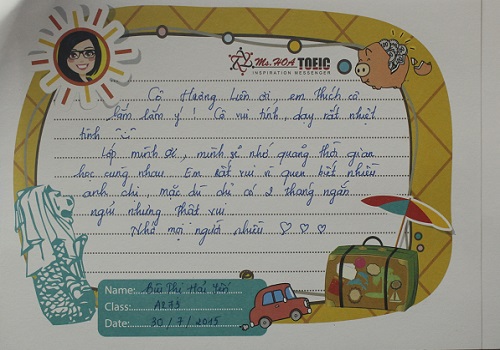 Ms.HOA TOEIC
INSPIRATION MESSENGER
Cô Hương Liên ơi, em thích cô
lắm lắm ý! Cô vui tính, dạy rất nhiệt
tình
Lớp mình ơi, mình sẽ nhớ quãng thời gian
học cùng nhau. Em rất vui vì quen biết nhiều
anh chị, mặc dù chỉ có 2 tháng ngắn
ngủi nhưng thật vui
Nhớ mọi người nhiều ♡ ♡ ♡
Name: Bùi Thị Hải Yến
Class: A273
Date: 30/7/2015